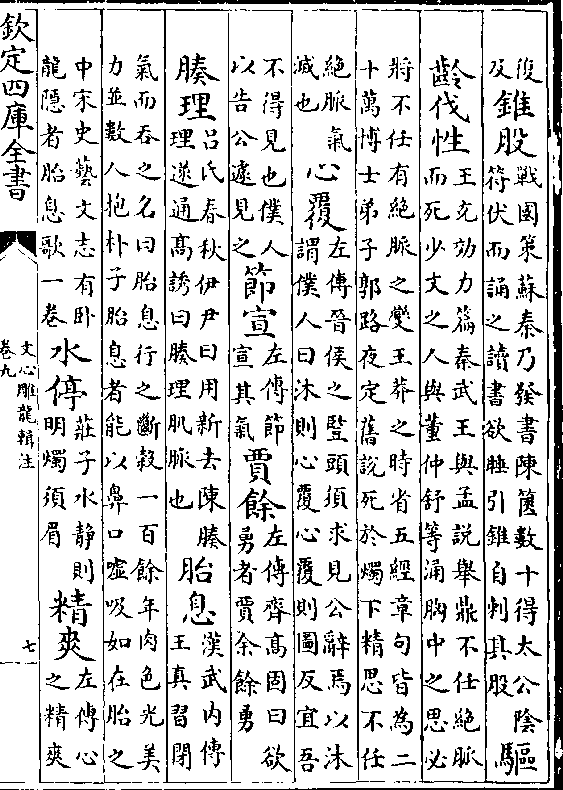 復及錐股戰國策蘇秦乃發書陳篋數十得太公陰符伏而誦之讀書欲睡引錐自刺其股驅
齡伐性王充効力篇秦武王與孟說舉鼎不任絕脈而死少文之人與董仲舒等涌胸中之思必
將不任有絕脈之變王莽之時省五經章句皆為二十萬博士弟子郭路夜定舊說死於燭下精思不任
絕脈氣滅也心覆左傳晉侯之豎頭須求見公辭焉以沐謂僕人曰沐則心覆心覆則圖反宜吾
不得見也僕人以告公遽見之節宣左傳節宣其氣賈餘左傳齊高固曰欲勇者賈余餘勇
腠理呂氏春秋伊尹曰用新去陳腠理遂通高誘曰腠理肌脈也胎息漢武内傳王真習閉
氣而吞之名曰胎息行之斷穀一百餘年肉色光美力並數人抱朴子胎息者能以鼻口噓吸如在胎之
中宋史藝文志有卧龍隱者胎息歌一卷水停莊子水静則明燭須眉精爽左傳心之精爽
欽定四庫全書
文心雕龍輯注
卷九
七